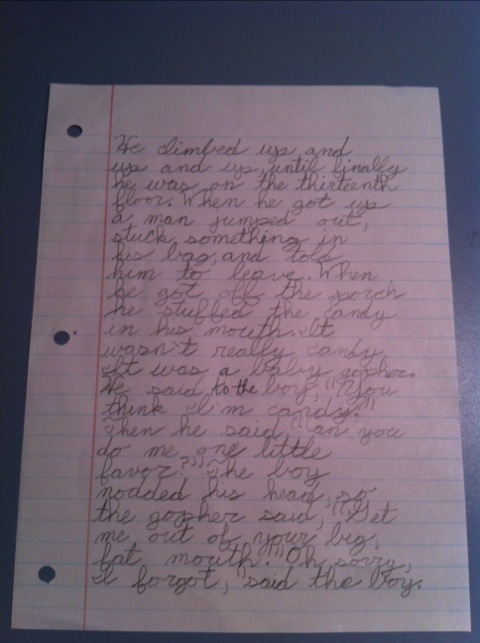 He climbed up and
up and up, until finally
he was on the thirteenth
floor. When he got up
a man jumped out,
stuck something in
his bag, and told
him to leave. When
he got off the porch
he stuffed the candy
in his mouth. It
wasn't really candy
It was a baby gopher.
He said to the boy, "You
think I'm candy?"
Then he said, "an you
do me one little
favor?" The boy
nodded his head, so
the gopher said, "Get
me out of your big,
fat mouth." Oh, sorry,
I forgot," said the boy.